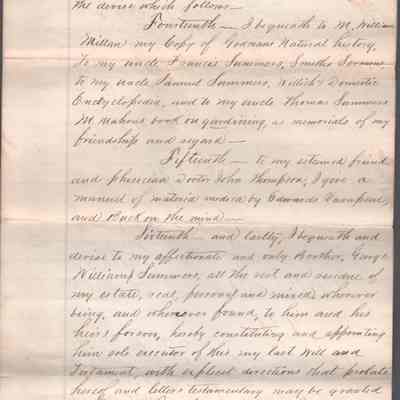 the devise which follows—
Fourteenth— I bequeath to M. William
Millan my Copy of Godmans Natural history,
to my uncle Francis Summers, Smiths Sermons,
to my uncle Samuel Summers, Willich's Domestic
Encyclopedia, and to my uncle Thomas Summers
M. Mahons book on gardening, as memorials of my
friendship and regard—
Fifteenth— to my esteemed friend
and physician Doctor John Thompson, I give a
manual of materia medica by Edwards
and Buck on the mind—
Sixteenth— and lastly, I bequeath and
devise to my affectionate and only Brother, George
William Summers, all the rest and residue of
my estate, real, personal and mixed, whatever
being, and wherever found, to him and his
heirs forever, hereby constituting and appointing
him sole executor of this my last Will and
Testament, with explicit directions that probate
hereof and letters testamentary may be granted